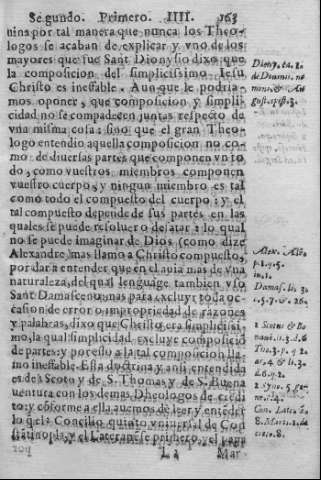 Segundo. Primero. IIII. 163
nina por tal manera que nunca los Theo-
logos se acaban de explicar y vno de los
mayores que fue Sant Dionysio dixo que
la composicion del simplicissimo Iesu
Christo es ineffable. Aunque le podria-
mos oponer, que composicion y simpli-
cidad no se compadecen juntas respecto de
vna misma cosa: sino que el gran Theo-
logo entendio aquella composicion no co-
mo de diuersas partes que componen vn to
do, como vuestros miembros componen
vuestro cuerpo, y ningun miembro es tal
como todo el compuesto del cuerpo: y el
tal compuesto depende de sus partes en las
quales se puede resoluer o desatar: lo qual
no se puede imaginar de Dios (como dize
Alexandre) mas llamo a Christo compuesto,
por dar a entender que en el auia mas de vna
naturaleza, del qual lenguage tambien vso
Sant Damasceno: mas para excluyr toda oc-
casion de error o impropriedad de razones
y palabras, dixo que Christo era simplicissi-
mo, la qual simplicidad excluye composicio
de partes: y por esso a la tal composicion lla-
mo ineffable. Esta doctrina y ansi entendida
es de Scoto y de S. Thomas y de S. Buena
uentura con los demas Dheologos de credi
to: y conforme a ella auemos de leer y entender
lo que Concilio quinto vniuersal de Con
stātinopla y el Lateranēse primero, y el papa
L 2 Mar
Diony. ca. 1.
de Diuinis.
August. epist. 3.
Alex. Ales
p. 1. q. 5.
Damas. li. 3.
c. 5. 7. & 26.
2 Scotus & Bo
naui. li. 3. d. 6
Tho. 3. p. q. 2
ar. 4. & li. 3.
d. 6. q. 2.
2 syno. 5 ge-
ner. 4.
Con. Late. 1.